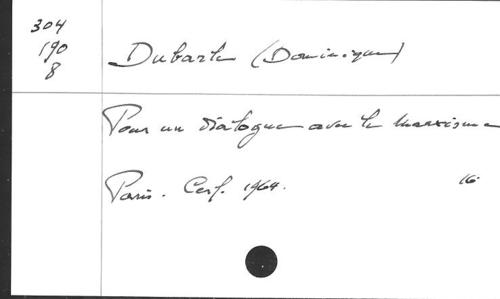 304
190
8
Dubarle (Dominique)
Pour un dialogue avec le marxisme
Paris. Cerf. 1964. 16